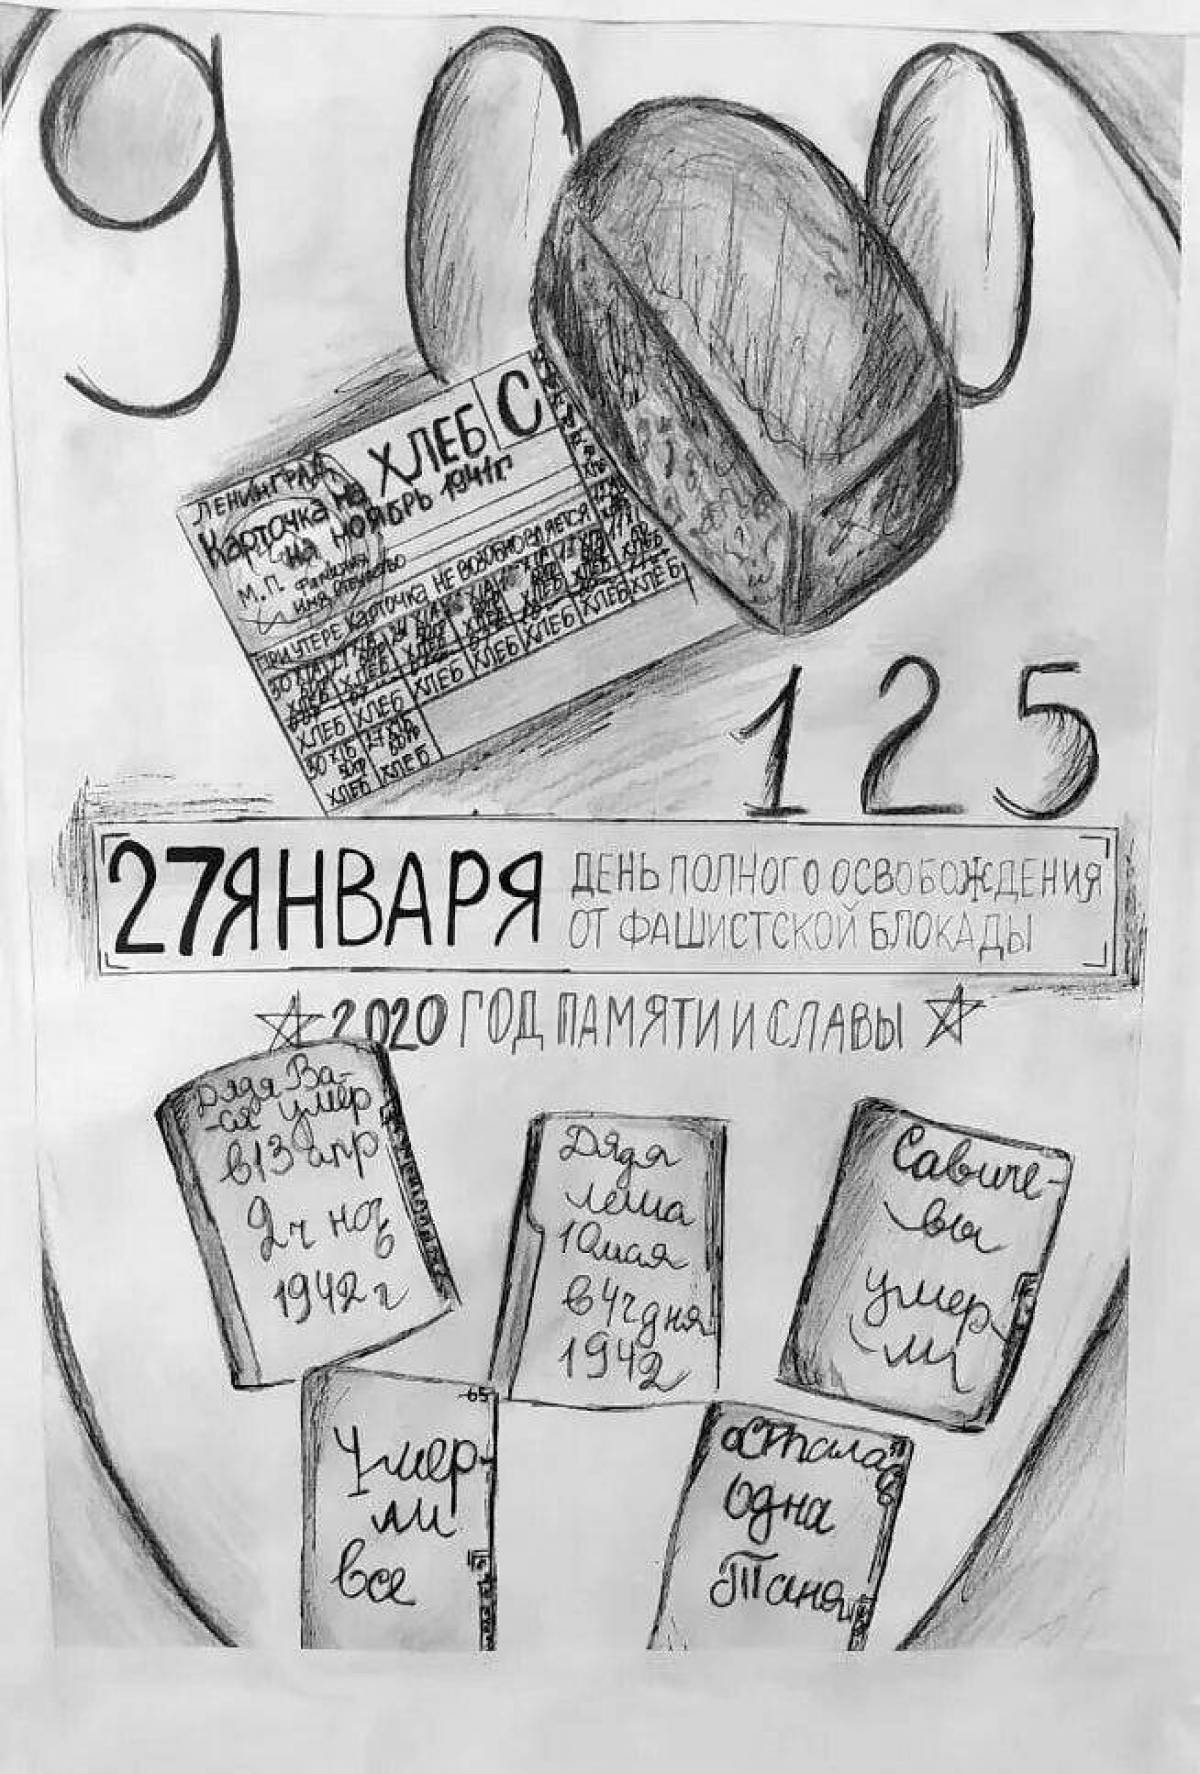 900
ЛЕНИНГРАД
Карточка на ХЛЕБ С
на НОЯБРЬ 1941г.
М.П. Фамилия
имя отчество
ПРИ УТЕРЕ Карточка НЕ ВОЗОБНОВЛЯЕТСЯ
ХЛЕБ ХЛЕБ ХЛЕБ ХЛЕБ ХЛЕБ ХЛЕБ ХЛЕБ
ХЛЕБ ХЛЕБ
125
27 ЯНВАРЯ
ДЕНЬ ПОЛНОГО ОСВОБОЖДЕНИЯ
ОТ ФАШИСТСКОЙ БЛОКАДЫ
2020 ГОД ПАМЯТИ И СЛАВЫ
Дядя Ва-
-ся умер
в 13 апр
2 ч ноч
1942 г
Дядя
Леша
10 мая
в 4 ч дня
1942
Савиче-
вы
умер
ли
65
Умер-
ли
все
осталась
одна
Таня